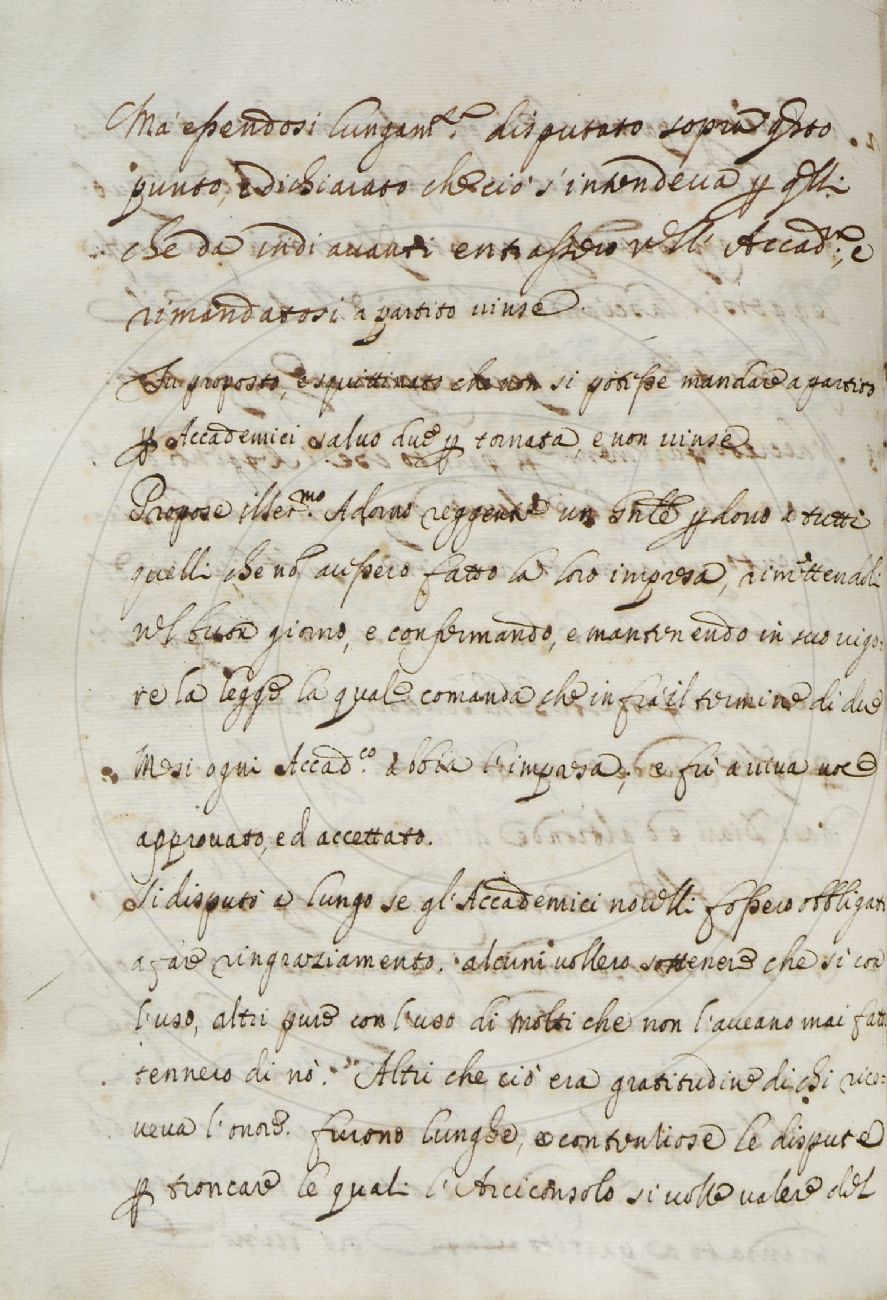 Ma' essendosi lungam.te disputato sopra q̃sto
punto, e dichiarato che ciò s'intendeva p q̃lli
che da indi avanti entrassero nell' Accad.a, e
rimandatosi a partito vinse.
Fu proposto, e squittinato che non si potesse mandare a partito
p Accademici salvo due p tornata, e non vinse.
Propose il Ser.mo Adorno reggente un gñle pdono a tutti
quelli che nõ avessero fatto la loro impresa, rimettendoli
nel buon giorno, e confermando, e mantenendo in suo vigo:
re la legge la quale comanda che in fra' il termine di due
Mesi ogni Accad.co abbia l'impresa; e fu' a viva voce
approvato, ed accettato.
Si disputò a lungo se gl'Accademici novelli fossero obbligati
a fare ringraziamento. alcuni vollero sostenere che sì con
l'uso, altri pure con l'uso di molti che non l'aveano mai fatto
tennero di nò. Altri che ciò era gratitudine di chi rice:
veva l'onore. furono lunghe, e contenziose le dispute
p troncare le quali l'Arciconsolo si volle valere del